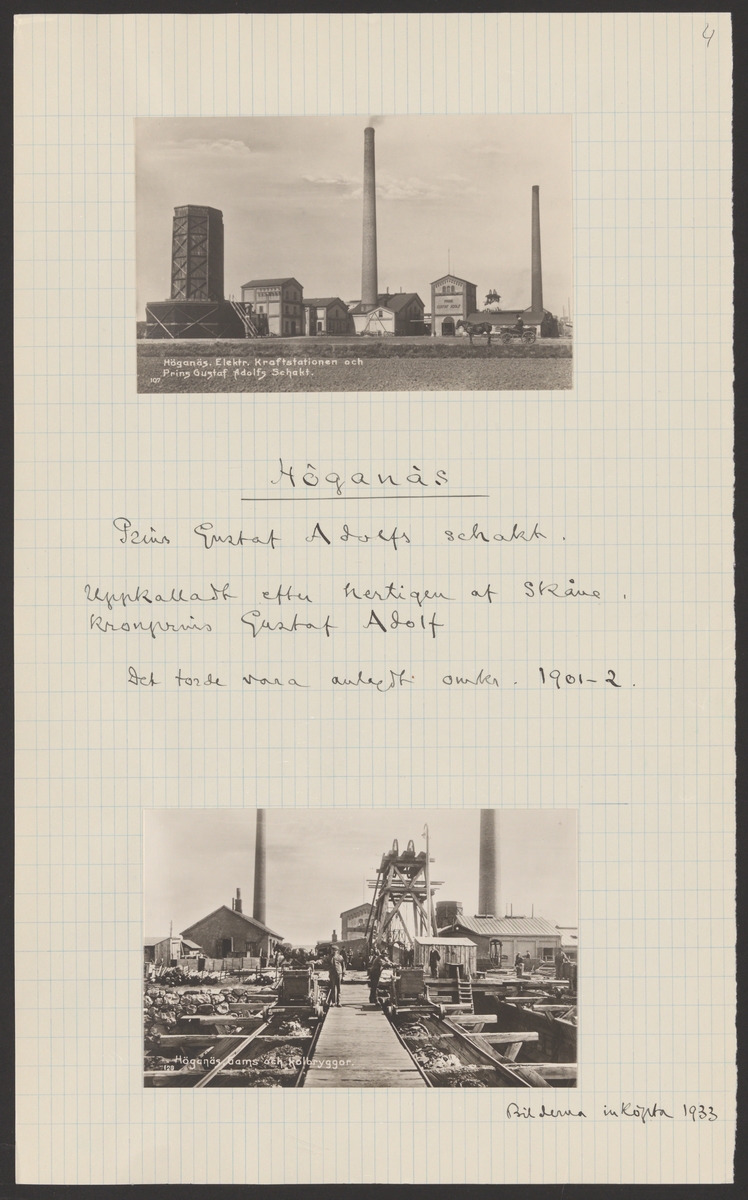 4
Höganäs, Elektr. Kraftstationen och
Prins Gustaf Adolfs Schakt.
107
Höganäs
Prins Gustaf Adolfs schakt.
Uppkalladt efter hertigen af Skåne,
kronprins Gustaf Adolf
Det torde vara anlagdt omkr. 1901-2.
Höganäs, Dams och Kolbryggor.
129
Bilderna inköpta 1933